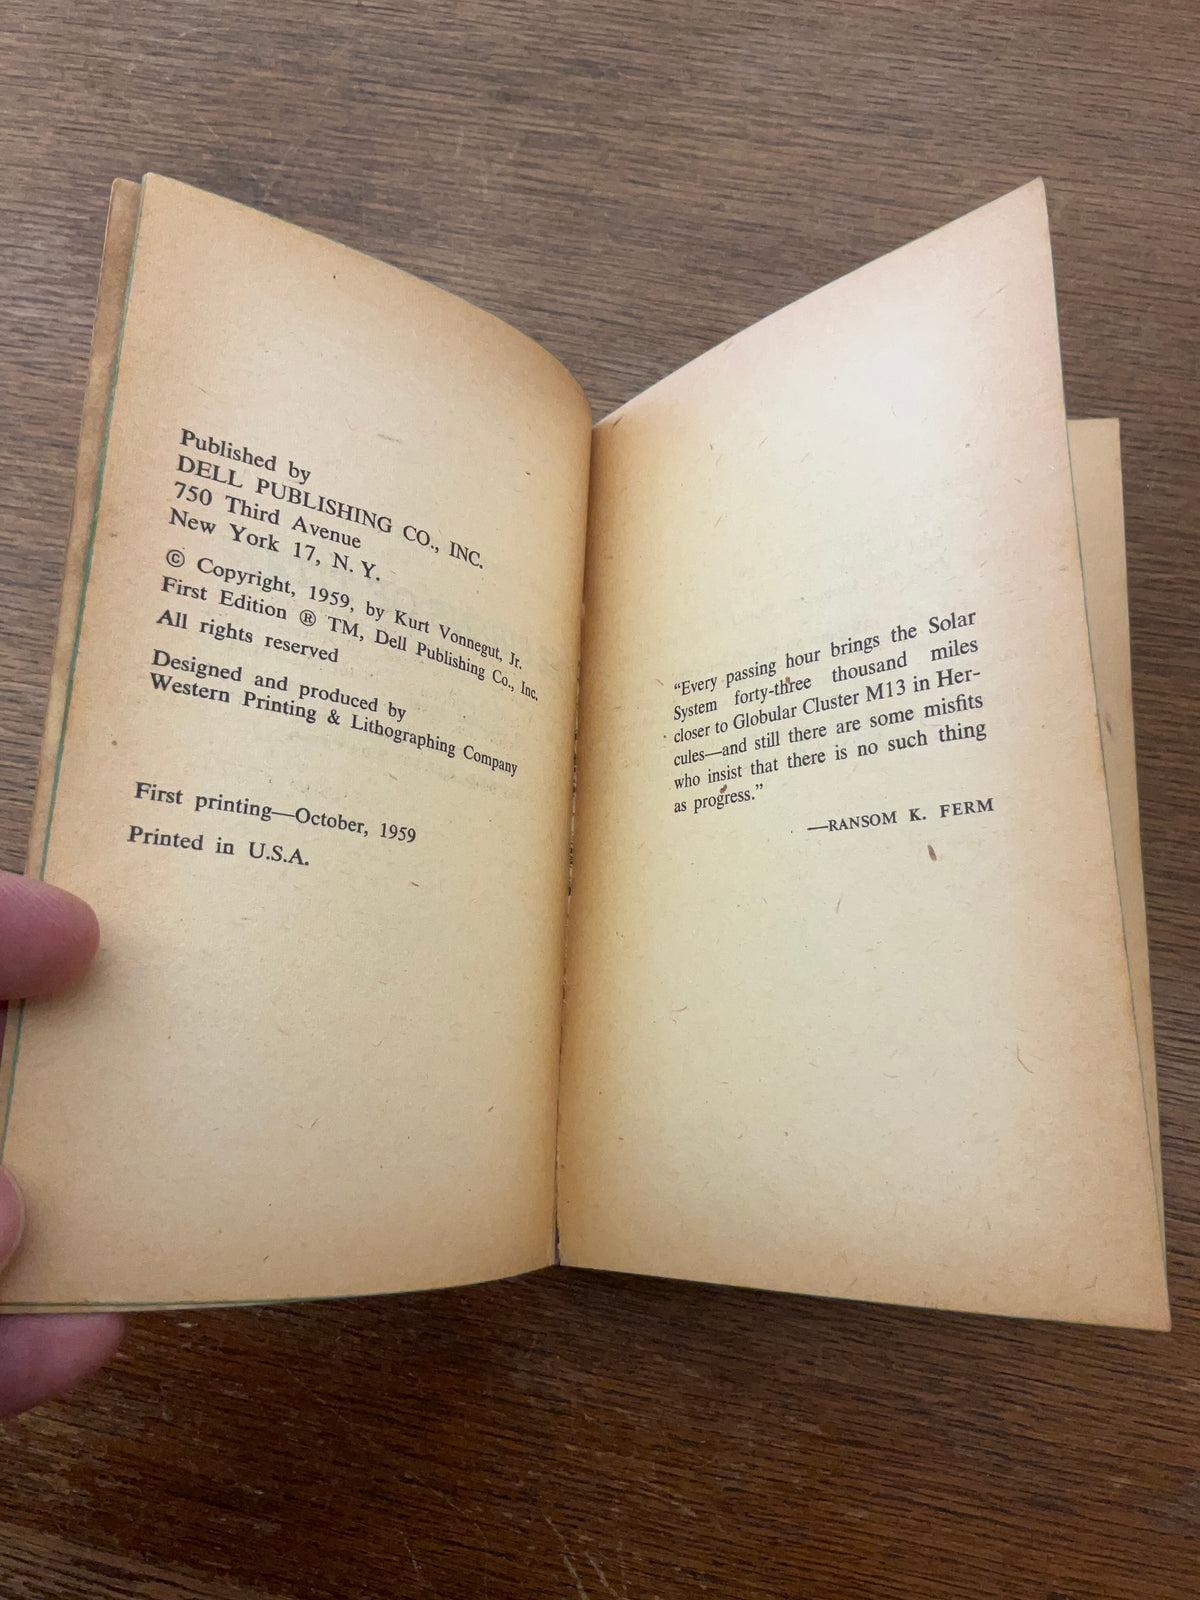 Published by
DELL PUBLISHING CO., INC.
750 Third Avenue
New York 17, N. Y.
© Copyright, 1959, by Kurt Vonnegut, Jr.
First Edition ® TM, Dell Publishing Co., Inc.
All rights reserved
Designed and produced by
Western Printing & Lithographing Company
First printing—October, 1959
Printed in U.S.A.
“Every passing hour brings the Solar
System forty-three thousand miles
closer to Globular Cluster M13 in Her-
cules—and still there are some misfits
who insist that there is no such thing
as progress.”
—RANSOM K. FERM